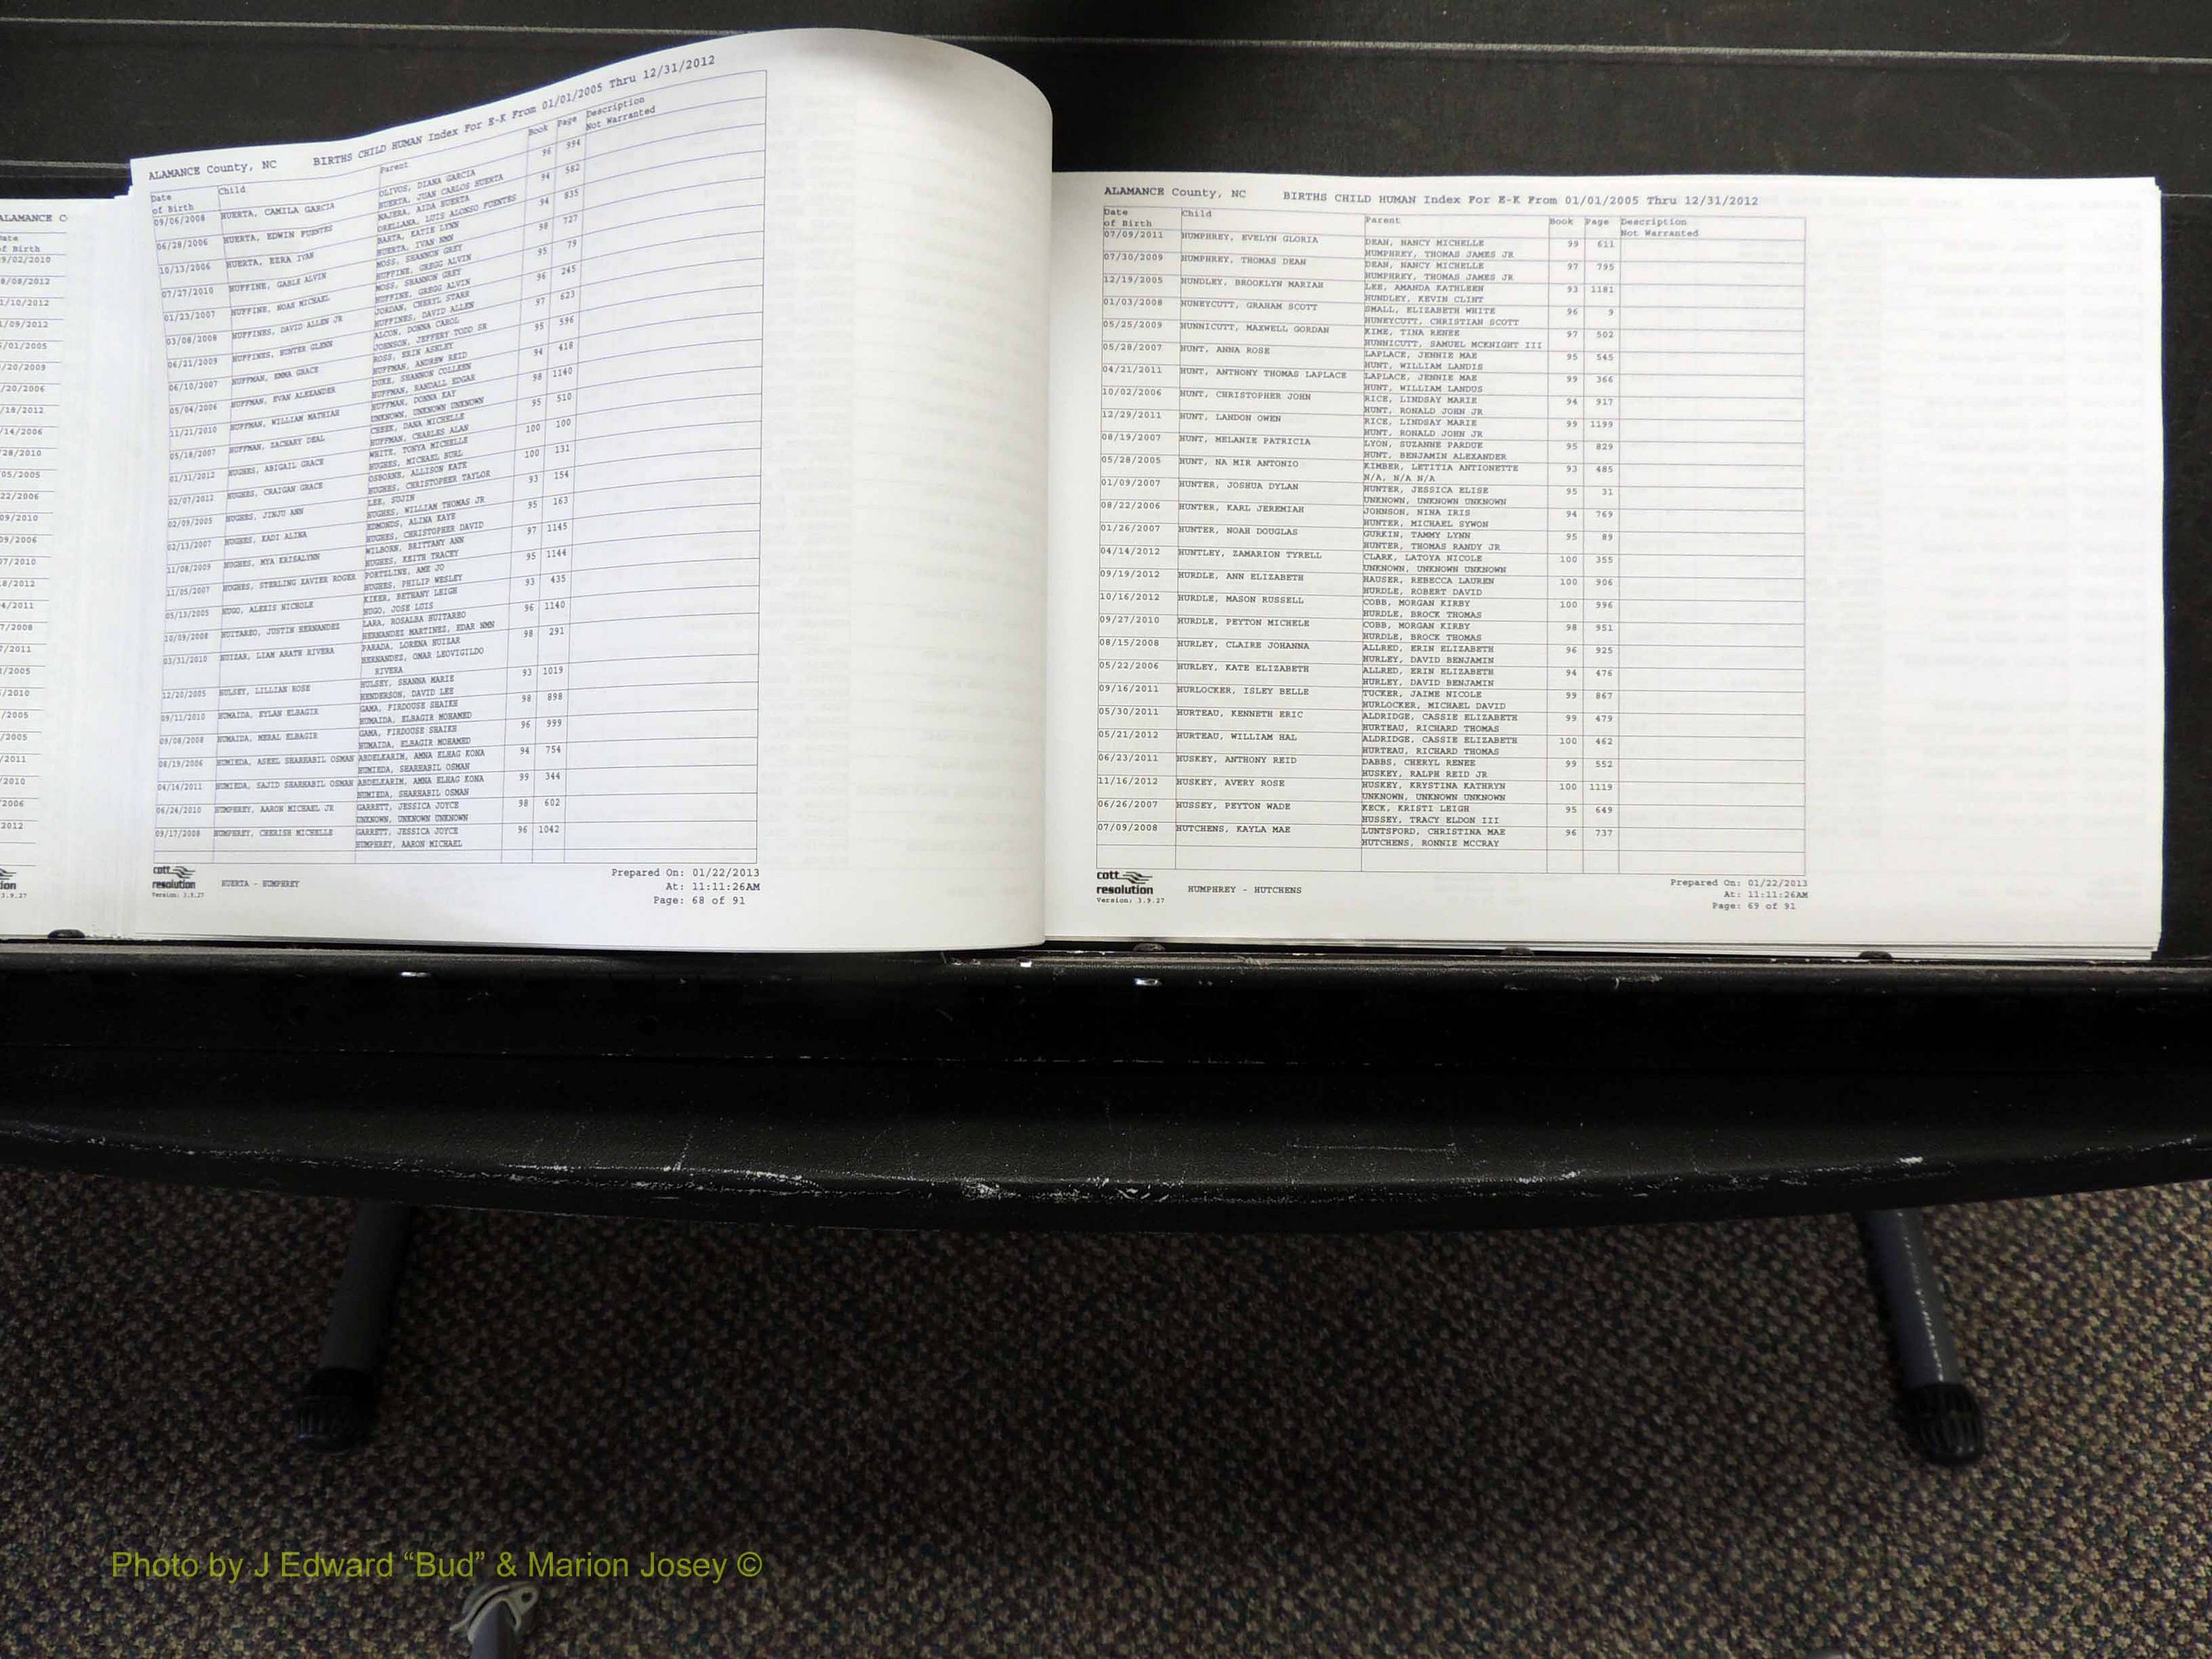 ALAMANCE County, NC BIRTHS CHILD HUMAN Index For E-K From 01/01/2005 Thru 12/31/2012
Date of Birth Child Parent Book Page Description Not Warranted
09/06/2008 HUERTA, CAMILA GARCIA OLIVOS, DIANA GARCIA 96 994
HUERTA, JUAN CARLOS HUERTA
06/28/2006 HUERTA, EDWIN FUENTES NAJERA, AIDA HUERTA 94 582
ORELLANA, LUIS ALONSO FUENTES
10/13/2006 HUERTA, EZRA IVAN BARTA, KATIE LYNN 94 835
HUERTA, IVAN NMN
07/27/2010 HUFFINE, GABLE ALVIN MOSS, SHANNON GREY 98 727
HUFFINE, GREGG ALVIN
01/23/2007 HUFFINE, NOAH MICHAEL MOSS, SHANNON GREY 95 79
HUFFINE, GREGG ALVIN
03/08/2008 HUFFINES, DAVID ALLEN JR JORDAN, CHERYL STARR 96 245
HUFFINES, DAVID ALLEN
06/21/2009 HUFFINES, HUNTER GLENN ALCON, DONNA CAROL 97 623
JOHNSON, JEFFERY TODD SR
06/10/2007 HUFFMAN, EMMA GRACE ROSS, ERIN ASHLEY 95 596
HUFFMAN, ANDREW REID
05/04/2006 HUFFMAN, EVAN ALEXANDER DUKE, SHANNON COLLEEN 94 418
HUFFMAN, RANDALL EDGAR
11/21/2010 HUFFMAN, WILLIAM MATHIAH HUFFMAN, DONNA KAY 98 1140
UNKNOWN, UNKNOWN UNKNOWN
05/18/2007 HUFFMAN, ZACHARY DEAL CHEEK, DANA MICHELLE 95 510
HUFFMAN, CHARLES ALAN
01/31/2012 HUGHES, ABIGAIL GRACE WHITE, TONYA MICHELLE 100 100
HUGHES, MICHAEL BURL
02/07/2012 HUGHES, CRAIGAN GRACE OSBORNE, ALLISON KATE 100 131
HUGHES, CHRISTOPHER TAYLOR
02/09/2005 HUGHES, JINJU ANN LEE, SUJIN 93 154
HUGHES, WILLIAM THOMAS JR
02/13/2007 HUGHES, KADI ALINA EDMONDS, ALINA KAYE 95 163
HUGHES, CHRISTOPHER DAVID
11/08/2009 HUGHES, MYA KRISALYNN WILBORN, BRITTANY ANN 97 1145
HUGHES, KEITH TRACEY
11/05/2007 HUGHES, STERLING XAVIER ROGER PORTZLINE, AME JO 95 1144
HUGHES, PHILIP WESLEY
05/13/2005 HUGO, ALEXIS NICHOLE KIKER, BETHANY LEIGH 93 435
HUGO, JOSE LUIS
10/09/2008 HUITAREO, JUSTIN HERNANDEZ LARA, ROSALBA HUITAREO 96 1140
HERNANDEZ MARTINEZ, EDAR NMN
03/31/2010 HUIZAR, LIAM ARATH RIVERA PARADA, LORENA HUIZAR 98 291
HERNANDEZ, OMAR LEOVIGILDO
RIVERA
12/20/2005 HULSEY, LILLIAN ROSE HULSEY, SHANNA MARIE 93 1019
HENDERSON, DAVID LEE
09/11/2010 HUMAIDA, EYLAN ELBAGIR GAMA, FIRDOUSE SHAIKH 98 898
HUMAIDA, ELBAGIR MOHAMED
09/08/2008 HUMAIDA, MERAL ELBAGIR GAMA, FIRDOUSE SHAIKH 96 999
HUMAIDA, ELBAGIR MOHAMED
08/19/2006 HUMIEDA, ASEEL SHARHABIL OSMAN ABDELKARIM, AMNA ELHAG KONA 94 754
HUMIEDA, SHARHABIL OSMAN
04/14/2011 HUMIEDA, SAJID SHARHABIL OSMAN ABDELKARIM, AMNA ELHAG KONA 99 344
HUMIEDA, SHARHABIL OSMAN
06/24/2010 HUMPHREY, AARON MICHAEL JR GARRETT, JESSICA JOYCE 98 602
UNKNOWN, UNKNOWN UNKNOWN
09/17/2008 HUMPHREY, CHERISH MICHELLE GARRETT, JESSICA JOYCE 96 1042
HUMPHREY, AARON MICHAEL
cott resolution
Version: 3.9.27
HUERTA - HUMPHREY
Prepared On: 01/22/2013
At: 11:11:26AM
Page: 68 of 91
ALAMANCE County, NC BIRTHS CHILD HUMAN Index For E-K From 01/01/2005 Thru 12/31/2012
Date of Birth Child Parent Book Page Description Not Warranted
07/09/2011 HUMPHREY, EVELYN GLORIA DEAN, NANCY MICHELLE 99 611
HUMPHREY, THOMAS JAMES JR
07/30/2009 HUMPHREY, THOMAS DEAN DEAN, NANCY MICHELLE 97 795
HUMPHREY, THOMAS JAMES JR
12/19/2005 HUNDLEY, BROOKLYN MARIAH LEE, AMANDA KATHLEEN 93 1181
HUNDLEY, KEVIN CLINT
01/03/2008 HUNEYCUTT, GRAHAM SCOTT SMALL, ELIZABETH WHITE 96 9
HUNEYCUTT, CHRISTIAN SCOTT
05/25/2009 HUNNICUTT, MAXWELL GORDAN KIME, TINA RENEE 97 502
HUNNICUTT, SAMUEL MCKNIGHT III
05/28/2007 HUNT, ANNA ROSE LAPLACE, JENNIE MAE 95 545
HUNT, WILLIAM LANDIS
04/21/2011 HUNT, ANTHONY THOMAS LAPLACE LAPLACE, JENNIE MAE 99 366
HUNT, WILLIAM LANDUS
10/02/2006 HUNT, CHRISTOPHER JOHN RICE, LINDSAY MARIE 94 917
HUNT, RONALD JOHN JR
12/29/2011 HUNT, LANDON OWEN RICE, LINDSAY MARIE 99 1199
HUNT, RONALD JOHN JR
08/19/2007 HUNT, MELANIE PATRICIA LYON, SUZANNE PARDUE 95 829
HUNT, BENJAMIN ALEXANDER
05/28/2005 HUNT, NA MIR ANTONIO KIMBER, LETITIA ANTIONETTE 93 485
N/A, N/A N/A
01/09/2007 HUNTER, JOSHUA DYLAN HUNTER, JESSICA ELISE 95 31
UNKNOWN, UNKNOWN UNKNOWN
08/22/2006 HUNTER, KARL JEREMIAH JOHNSON, NINA IRIS 94 769
HUNTER, MICHAEL SYWON
01/26/2007 HUNTER, NOAH DOUGLAS GURKIN, TAMMY LYNN 95 89
HUNTER, THOMAS RANDY JR
04/14/2012 HUNTLEY, ZAMARION TYRELL CLARK, LATOYA NICOLE 100 355
UNKNOWN, UNKNOWN UNKNOWN
09/19/2012 HURDLE, ANN ELIZABETH HAUSER, REBECCA LAUREN 100 906
HURDLE, ROBERT DAVID
10/16/2012 HURDLE, MASON RUSSELL COBB, MORGAN KIRBY 100 996
HURDLE, BROCK THOMAS
09/27/2010 HURDLE, PEYTON MICHELE COBB, MORGAN KIRBY 98 951
HURDLE, BROCK THOMAS
08/15/2008 HURLEY, CLAIRE JOHANNA ALLRED, ERIN ELIZABETH 96 925
HURLEY, DAVID BENJAMIN
05/22/2006 HURLEY, KATE ELIZABETH ALLRED, ERIN ELIZABETH 94 476
HURLEY, DAVID BENJAMIN
09/16/2011 HURLOCKER, ISLEY BELLE TUCKER, JAIME NICOLE 99 867
HURLOCKER, MICHAEL DAVID
05/30/2011 HURTEAU, KENNETH ERIC ALDRIDGE, CASSIE ELIZABETH 99 479
HURTEAU, RICHARD THOMAS
05/21/2012 HURTEAU, WILLIAM HAL ALDRIDGE, CASSIE ELIZABETH 100 462
HURTEAU, RICHARD THOMAS
06/23/2011 HUSKEY, ANTHONY REID DABBS, CHERYL RENEE 99 552
HUSKEY, RALPH REID JR
11/16/2012 HUSKEY, AVERY ROSE HUSKEY, KRYSTINA KATHRYN 100 1119
UNKNOWN, UNKNOWN UNKNOWN
06/26/2007 HUSSEY, PEYTON WADE KECK, KRISTI LEIGH 95 649
HUSSEY, TRACY ELDON III
07/09/2008 HUTCHENS, KAYLA MAE LUNTSFORD, CHRISTINA MAE 96 737
HUTCHENS, RONNIE MCCRAY
cott resolution
Version: 3.9.27
HUMPHREY - HUTCHENS
Prepared On: 01/22/2013
At: 11:11:26AM
Page: 69 of 91
Photo by J Edward “Bud” & Marion Josey ©